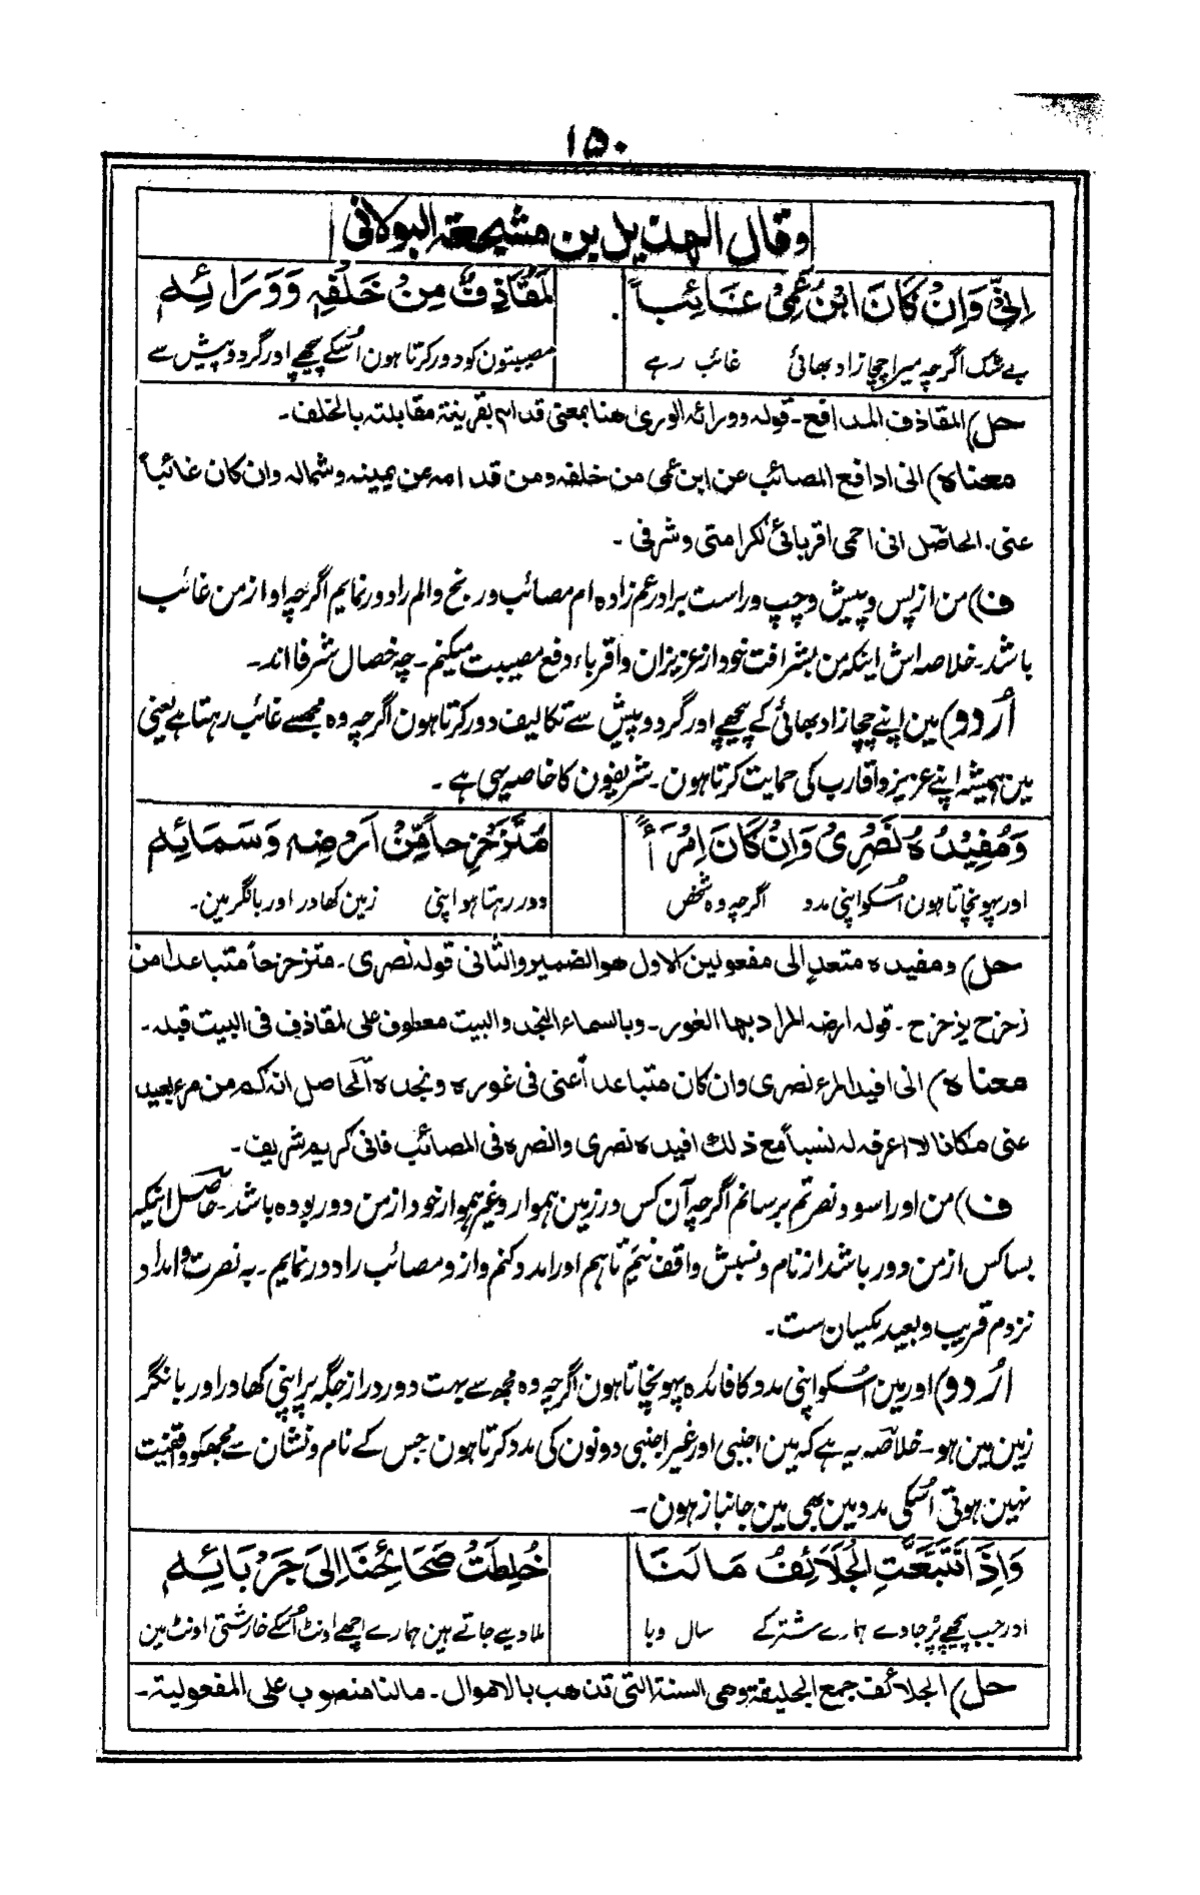 ۱۵۰
وقال الهذيل بن مشيجعة البولاني
اِنِّیْ وَاِنْ کَانَ ابْنُ عَمِّیْ غَائِباً لَمُقَاذِفٌ مِنْ خَلْفِهٖ وَوَرَائِهٖ
بے شک اگرچہ میرا چچازاد بھائی غائب رہے مصیبتون کو دور کرتا ہون اُسکے پیچھے اور گرد و پیش سے
حل) المقاذف المدافع۔ قوله وورائه الوریٰ هنا بمعنی قدام بقرینة مقابلته بالخلف۔
معناه) انی ادافع المصائب عن ابن عمی من خلفه ومن قدامه عن یمینه وشماله وان کان غائباً
عنی. الحاصل انی احمی اقربائی لکرامتی وشرفی۔
ف) من از پس و پیش و چپ و راست برادر عم زاده ام مصائب و رنج و الم را دور نمایم اگرچہ او از من غائب
باشد۔ خلاصه اش اینکه من بشرافت خود از عزیزان و اقرباء دفع مصیبت میکنم۔ چه خصال شرفا اند۔
اُردو) مین اپنے چچازاد بھائی کے پیچھے اور گرد و پیش سے تکالیف دور کرتا ہون اگرچہ وہ مجھسے غائب رہتا ہے یعنی
مین ہمیشہ اپنے عزیز و اقارب کی حمایت کرتا ہون۔ شریفون کا خاصہ یہی ہے۔
وَمُفِیْدُهُ نَصْرِیْ وَاِنْ کَانَ امْرَأً مُتَزَحْزِحاً مِّنْ اَرْضِهٖ وَسَمَائِهٖ
اور پہونچاتا ہون اُسکو اپنی مدد اگرچہ وہ شخص دور رہتا ہو اپنی زمین کھادر اور بانگر مین۔
حل) ومفیده متعدٍ الی مفعولین الاول هو الضمیر والثانی قوله نصری۔ متزحزحاً متباعداً من
زحزح یزحزح۔ قوله ارضه المراد بها الغور۔ وبالسماء النجد والبیت معطوف علی لمقاذف فی البیت قبله۔
معناه) انی افید المرء نصری وان کان متباعداً عنی فی غوره ونجده الحاصل انه کم من مرء بعید
عنی مکانا لا اعرف له نسباً مع ذلك افیده نصری وانصره فی المصائب فانی کریم شریف۔
ف) من او را سود نصرتم برسانم اگرچہ آن کس در زمین ہموار و غیر ہموار خود از من دور بوده باشد۔ حاصل اینکه
بسا کس از من دور باشد از نام و نسبش واقف نیم تاہم او را مدد کنم و از و مصائب را دور نمایم۔ به نصرت و امداد
نزدم قریب و بعید یکسان ست۔
اُردو) اور مین اُسکو اپنی مدد کا فائدہ پہونچاتا ہون اگرچہ وہ مجھ سے بہت دور دراز جگہ پر اپنی کھادر اور بانگر
زمین مین ہو۔ خلاصہ یہ ہے کہ مین اجنبی اور غیر اجنبی دونون کی مدد کرتا ہون جس کے نام و نشان سے مجھکو واقفیت
نہین ہوتی اُسکی مدد مین بھی مین جانباز ہون۔
وَاِذَا تَتَبَّعَتِ الْجَلَائِفُ مَالَنَا خُلِطَتْ صَحَائِحُنَا اِلیٰ جَرْبَائِهٖ
اور جب پیچھے پڑ جاوے ہمارے شتر کے سال وبا ملا دیے جاتے ہین ہمارے اچھے اونٹ اُسکے خارشتی اونٹ مین
حل) الجلائف جمع الجلیفة وهی السنة التی تذهب بالاموال۔ مالنا منصوب علی المفعولیة۔